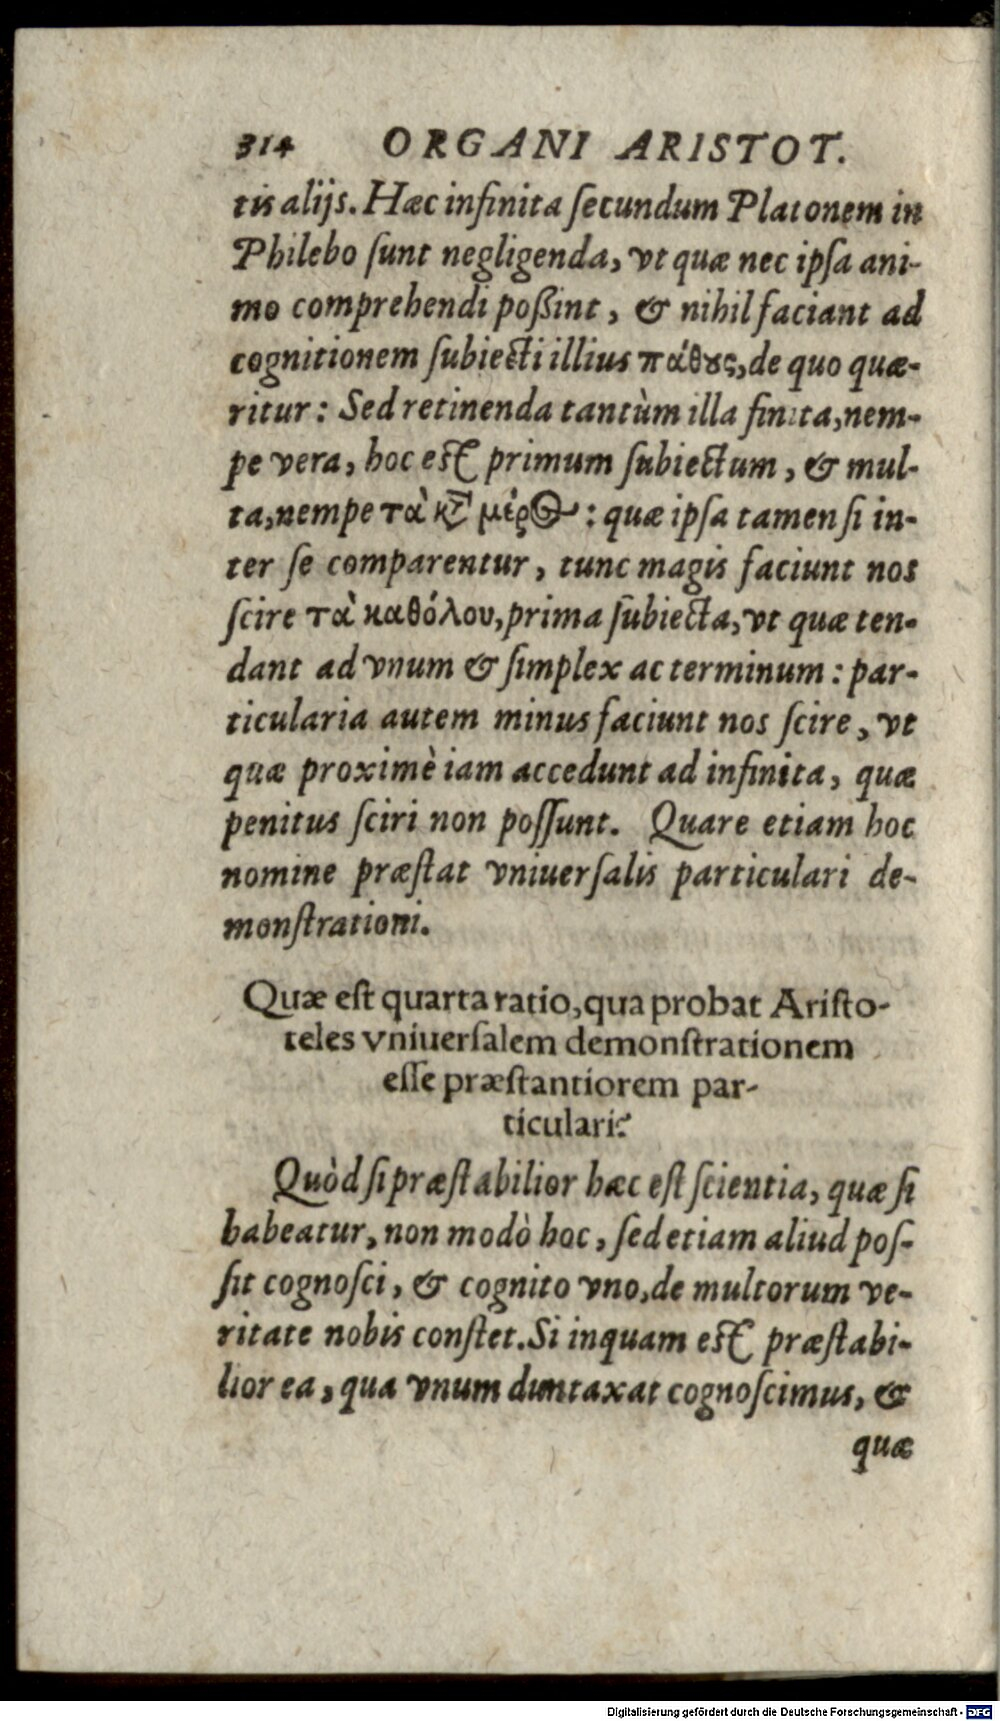 314 ORGANI ARISTOT.
tis alijs. Hæc infinita ſecundum Platonem in
Philebo ſunt negligenda, vt quæ nec ipſa ani-
mo comprehendi poßint, & nihil faciant ad
cognitionem ſubiecti illius πάθους, de quo quæ-
ritur: Sed retinenda tantùm illa finita, nem-
pe vera, hoc est primum ſubiectum, & mul-
ta, nempe τὰ κΤ μέρος: quæ ipſa tamen ſi in-
ter ſe comparentur, tunc magis faciunt nos
ſcire τὰ καθόλου, prima ſubiecta, vt quæ ten-
dant ad vnum & ſimplex ac terminum: par-
ticularia autem minus faciunt nos ſcire, vt
quæ proximè iam accedunt ad infinita, quæ
penitus ſciri non poſſunt. Quare etiam hoc
nomine præſtat vniuerſalis particulari de-
monſtrationi.
Quæ eſt quarta ratio, qua probat Ariſto-
teles vniuerſalem demonſtrationem
eſſe præſtantiorem par-
ticulari?
Quòd ſi præſtabilior hæc eſt ſcientia, quæ ſi
habeatur, non modò hoc, ſed etiam aliud poſ-
ſit cognoſci, & cognito vno, de multorum ve-
ritate nobis conſtet. Si inquam est præſtabi-
lior ea, qua vnum duntaxat cognoſcimus, &
quæ
Digitalisierung gefördert durch die Deutsche Forschungsgemeinschaft - DFG